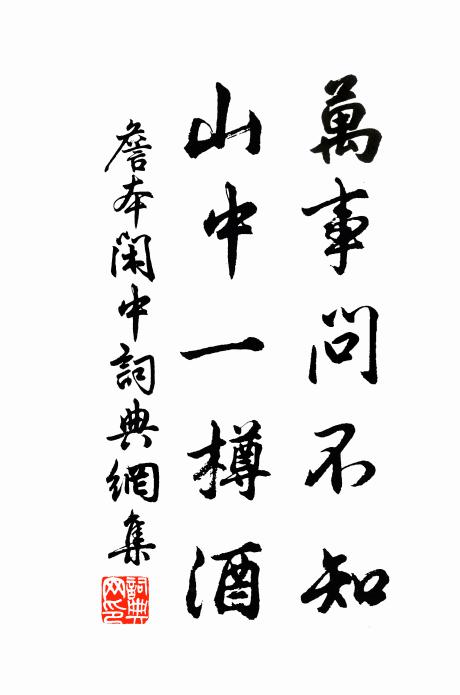 萬事問不知
山中一樽酒
詹本閑中詞典網集
詞典网印